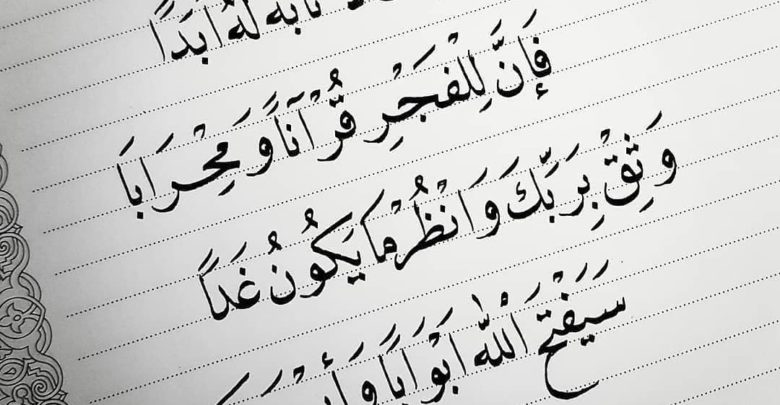 تأبه له أبدا
فَإنَّ لِلْفَجْرِ قُرْآناً وَمِحْرَابَا
وَثِقْ بِرَبِّكَ وَانْظُرْ مَا يَكُونُ غَدَاً
سَيَفْتَحُ اللّٰهُ أبْوَابَاً